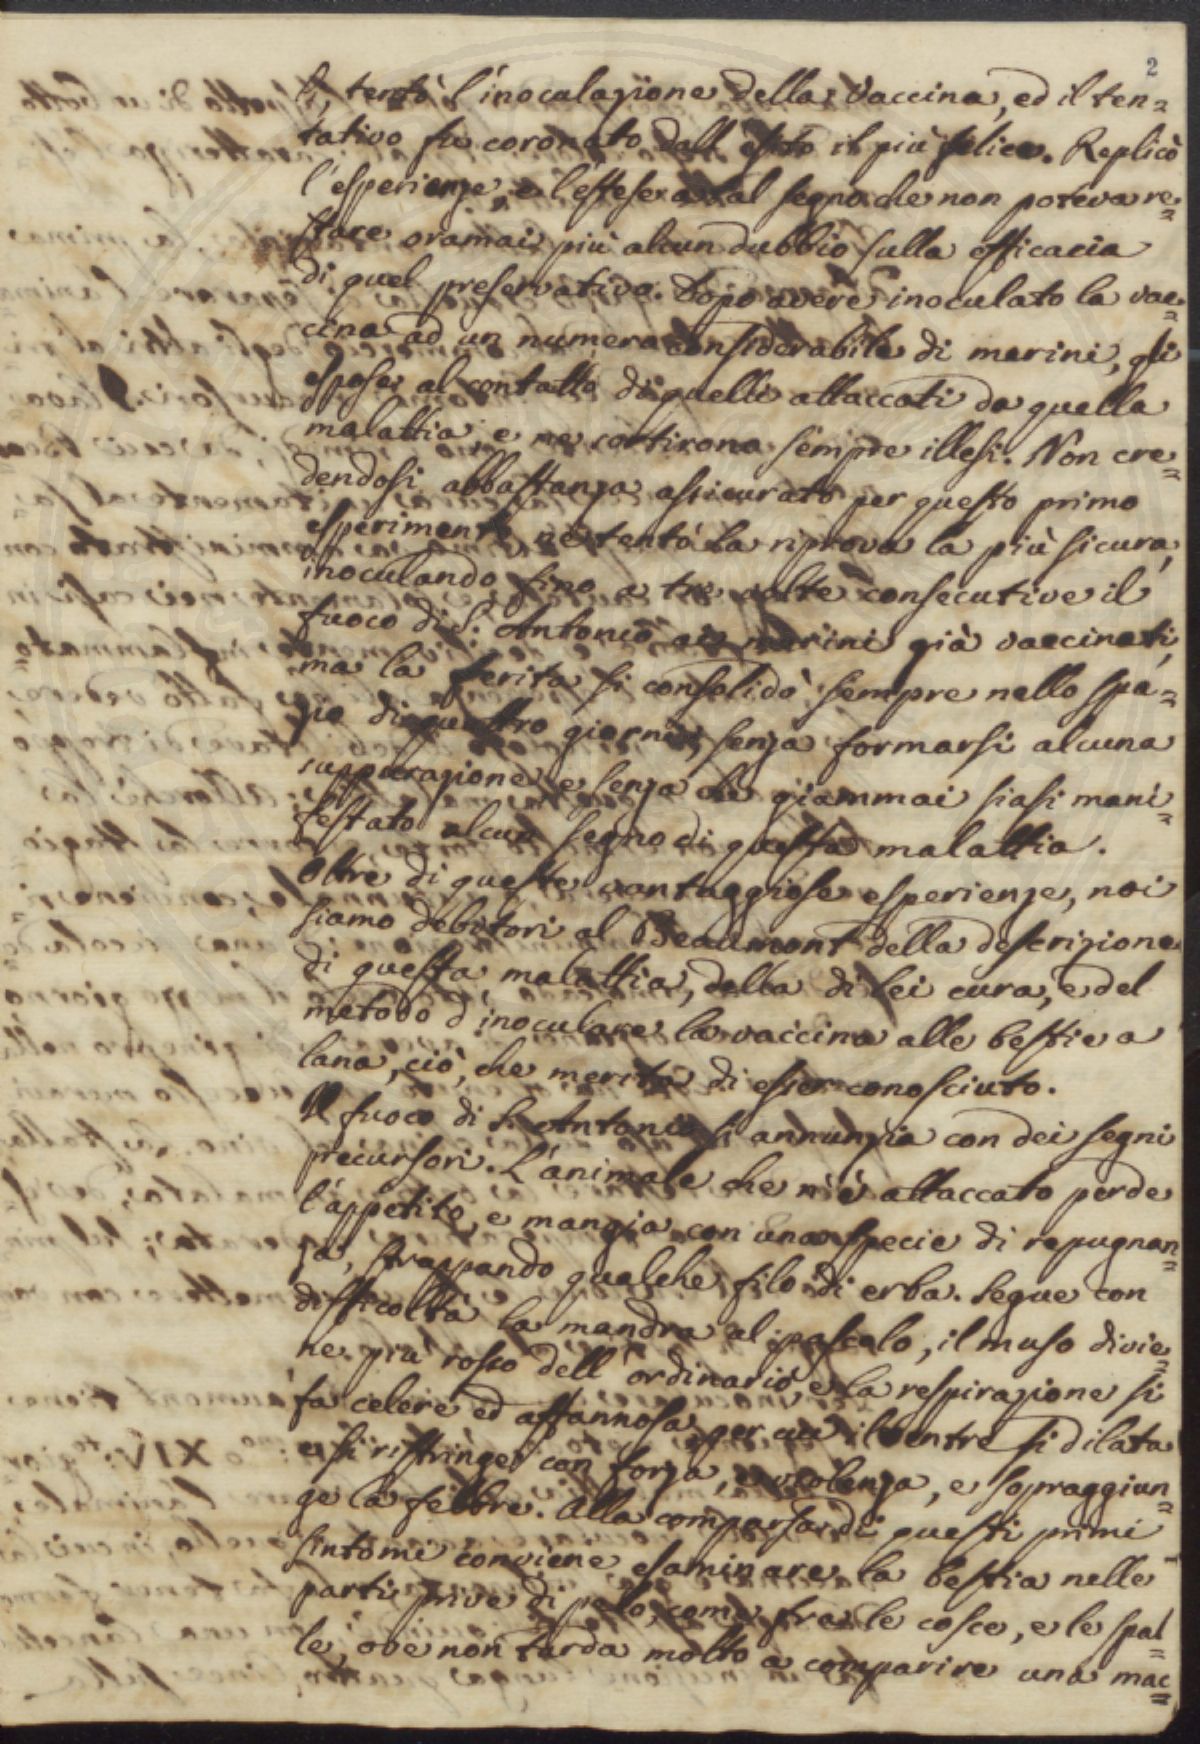 2
li, tentò l'inoculazione della Vaccina, ed il ten=
tativo fu coronato dall'esito il più felice. Replicò
l'esperienze, e l'estese a tal segno che non poteva re=
stare oramai più alcun dubbio sulla efficacia
di quel preservativo. Dopo avere inoculato la vac=
cina ad un numero considerabile di merini, gli
espose al contatto di quelli attaccati da quella
malattia, e ne sortirono sempre illesi. Non cre=
dendosi abbastanza assicurato per questo primo
esperimento ne tentò la riprova la più sicura,
inoculando fino a tre volte consecutive il
fuoco di S. Antonio ai merini già vaccinati,
ma la ferita si consolidò sempre nello spa=
zio di quattro giorni, senza formarsi alcuna
suppurazione e senza che giammai siasi mani=
festato alcun segno di questa malattia.
Oltre di queste vantaggiose esperienze, noi
siamo debitori al Beaumont della descrizione
di questa malattia, della di lei cura, e del
metodo d'inoculare la vaccina alle bestie a
lana, ciò, che merita di esser conosciuto.
Il fuoco di S. Antonio si annunzia con dei segni
precursori. L'animale che n'è attaccato perde
l'appetito, e mangia con una specie di repugnan=
za, strappando qualche filo di erba. Segue con
difficoltà la mandra al pascolo, il muso divie=
ne più rosso dell'ordinario, e la respirazione si
fa celere ed affannosa, per cui il ventre si dilata
e si ristringe con forza, e violenza, e sopraggiun=
ge la febbre. Alla comparsa di questi primi
sintomi conviene esaminare la bestia nelle
parti prive di pelo, come fra le cosce, e le spal=
le, ove non tarda molto a comparire una mac=